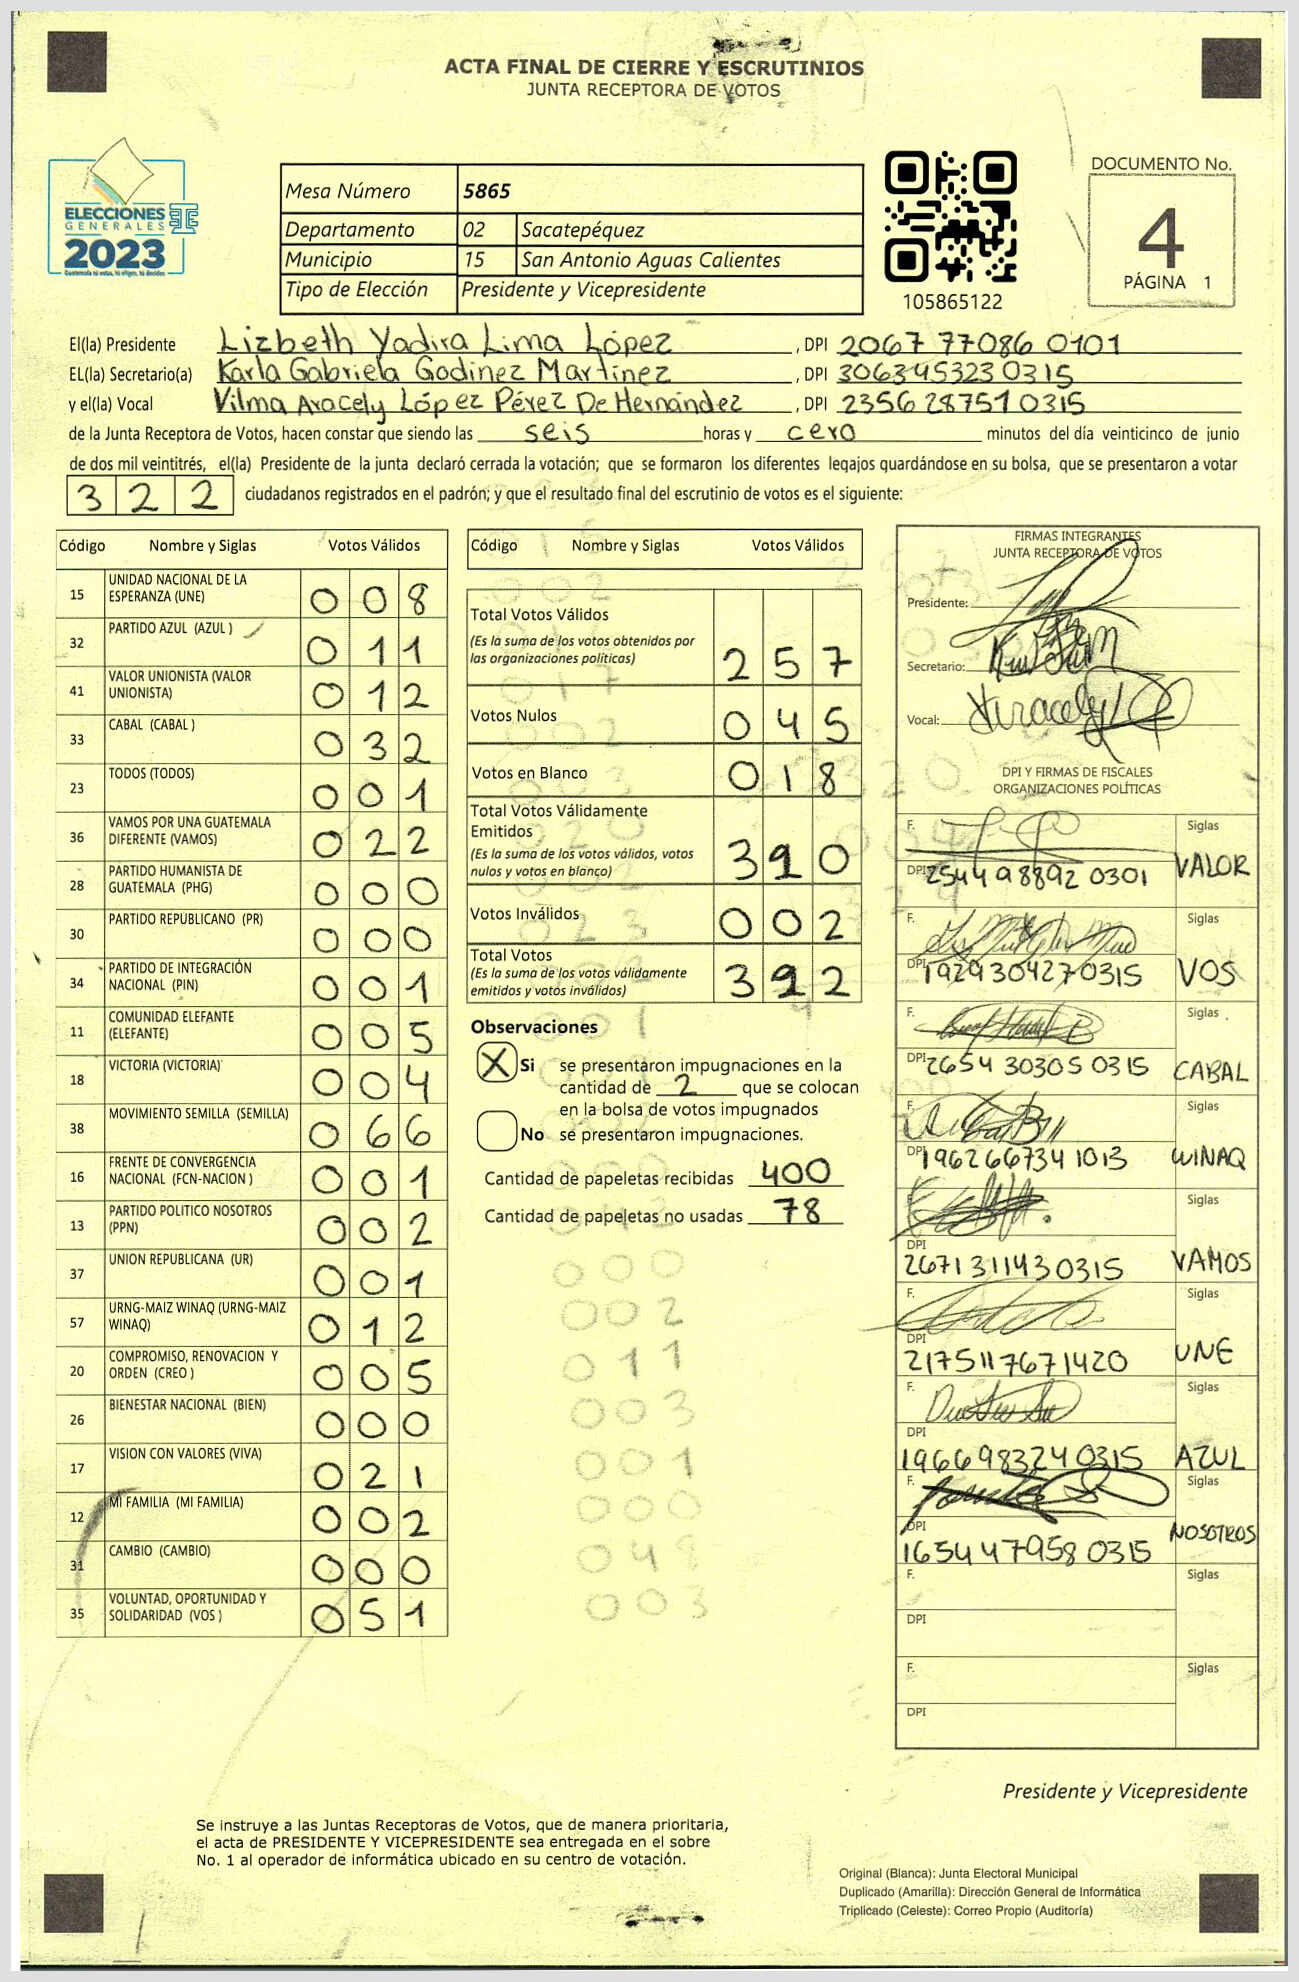 ACTA FINAL DE CIERRE Y ESCRUTINIOS
JUNTA RECEPTORA DE VOTOS
ELECCIONES
GENERALES
2023
Guatemala tú votas, tú eliges, tú decides
Mesa Número 5865
Departamento 02 Sacatepéquez
Municipio 15 San Antonio Aguas Calientes
Tipo de Elección Presidente y Vicepresidente
105865122
DOCUMENTO No.
4
PÁGINA 1
El(la) Presidente Lizbeth Yadira Lima López, DPI 2067 77086 0101
EL(la) Secretario(a) Karla Gabriela Godinez Martínez, DPI 3063453230315
y el(la) Vocal Vilma Aracely López Pérez De Hernández, DPI 2356 28751 0315
de la Junta Receptora de Votos, hacen constar que siendo las seis horas y cero minutos del día veinticinco de junio
de dos mil veintitrés, el(la) Presidente de la junta declaró cerrada la votación; que se formaron los diferentes legajos guardándose en su bolsa, que se presentaron a votar
322 ciudadanos registrados en el padrón; y que el resultado final del escrutinio de votos es el siguiente:
Código Nombre y Siglas Votos Válidos
15 UNIDAD NACIONAL DE LA ESPERANZA (UNE) 008
32 PARTIDO AZUL (AZUL ) 011
41 VALOR UNIONISTA (VALOR UNIONISTA) 012
33 CABAL (CABAL ) 032
23 TODOS (TODOS) 001
36 VAMOS POR UNA GUATEMALA DIFERENTE (VAMOS) 022
28 PARTIDO HUMANISTA DE GUATEMALA (PHG) 000
30 PARTIDO REPUBLICANO (PR) 000
34 PARTIDO DE INTEGRACIÓN NACIONAL (PIN) 001
11 COMUNIDAD ELEFANTE (ELEFANTE) 005
18 VICTORIA (VICTORIA) 004
38 MOVIMIENTO SEMILLA (SEMILLA) 066
16 FRENTE DE CONVERGENCIA NACIONAL (FCN-NACION ) 001
13 PARTIDO POLITICO NOSOTROS (PPN) 002
37 UNION REPUBLICANA (UR) 001
57 URNG-MAIZ WINAQ (URNG-MAIZ WINAQ) 012
20 COMPROMISO, RENOVACION Y ORDEN (CREO ) 005
26 BIENESTAR NACIONAL (BIEN) 000
17 VISION CON VALORES (VIVA) 021
12 MI FAMILIA (MI FAMILIA) 002
31 CAMBIO (CAMBIO) 000
35 VOLUNTAD, OPORTUNIDAD Y SOLIDARIDAD (VOS ) 051
Código Nombre y Siglas Votos Válidos
Total Votos Válidos
(Es la suma de los votos obtenidos por las organizaciones políticas) 257
Votos Nulos 045
Votos en Blanco 018
Total Votos Válidamente Emitidos
(Es la suma de los votos válidos, votos nulos y votos en blanco) 320
Votos Inválidos 002
Total Votos
(Es la suma de los votos válidamente emitidos y votos inválidos) 322
Observaciones
X Si se presentaron impugnaciones en la
cantidad de 2 que se colocan
en la bolsa de votos impugnados
No se presentaron impugnaciones.
Cantidad de papeletas recibidas 400
Cantidad de papeletas no usadas 78
FIRMAS INTEGRANTES
JUNTA RECEPTORA DE VOTOS
Presidente:
Secretario:
Vocal: Aracely
DPI Y FIRMAS DE FISCALES
ORGANIZACIONES POLÍTICAS
F. Siglas
DPI 2544988920301 VALOR
F. Siglas
DPI 1929304270315 VOS
F. Siglas
DPI 2654 30305 0315 CABAL
F. Siglas
DPI 1962667341013 WINAQ
F. Siglas
DPI 2671311430315 VAMOS
F. Siglas
DPI 2175117671420 UNE
F. Siglas
DPI 1966983240315 AZUL
F. Siglas
DPI 1654479580315 NOSOTROS
F. Siglas
DPI
F. Siglas
DPI
Presidente y Vicepresidente
Se instruye a las Juntas Receptoras de Votos, que de manera prioritaria,
el acta de PRESIDENTE Y VICEPRESIDENTE sea entregada en el sobre
No. 1 al operador de informática ubicado en su centro de votación.
Original (Blanca): Junta Electoral Municipal
Duplicado (Amarilla): Dirección General de Informática
Triplicado (Celeste): Correo Propio (Auditoría)